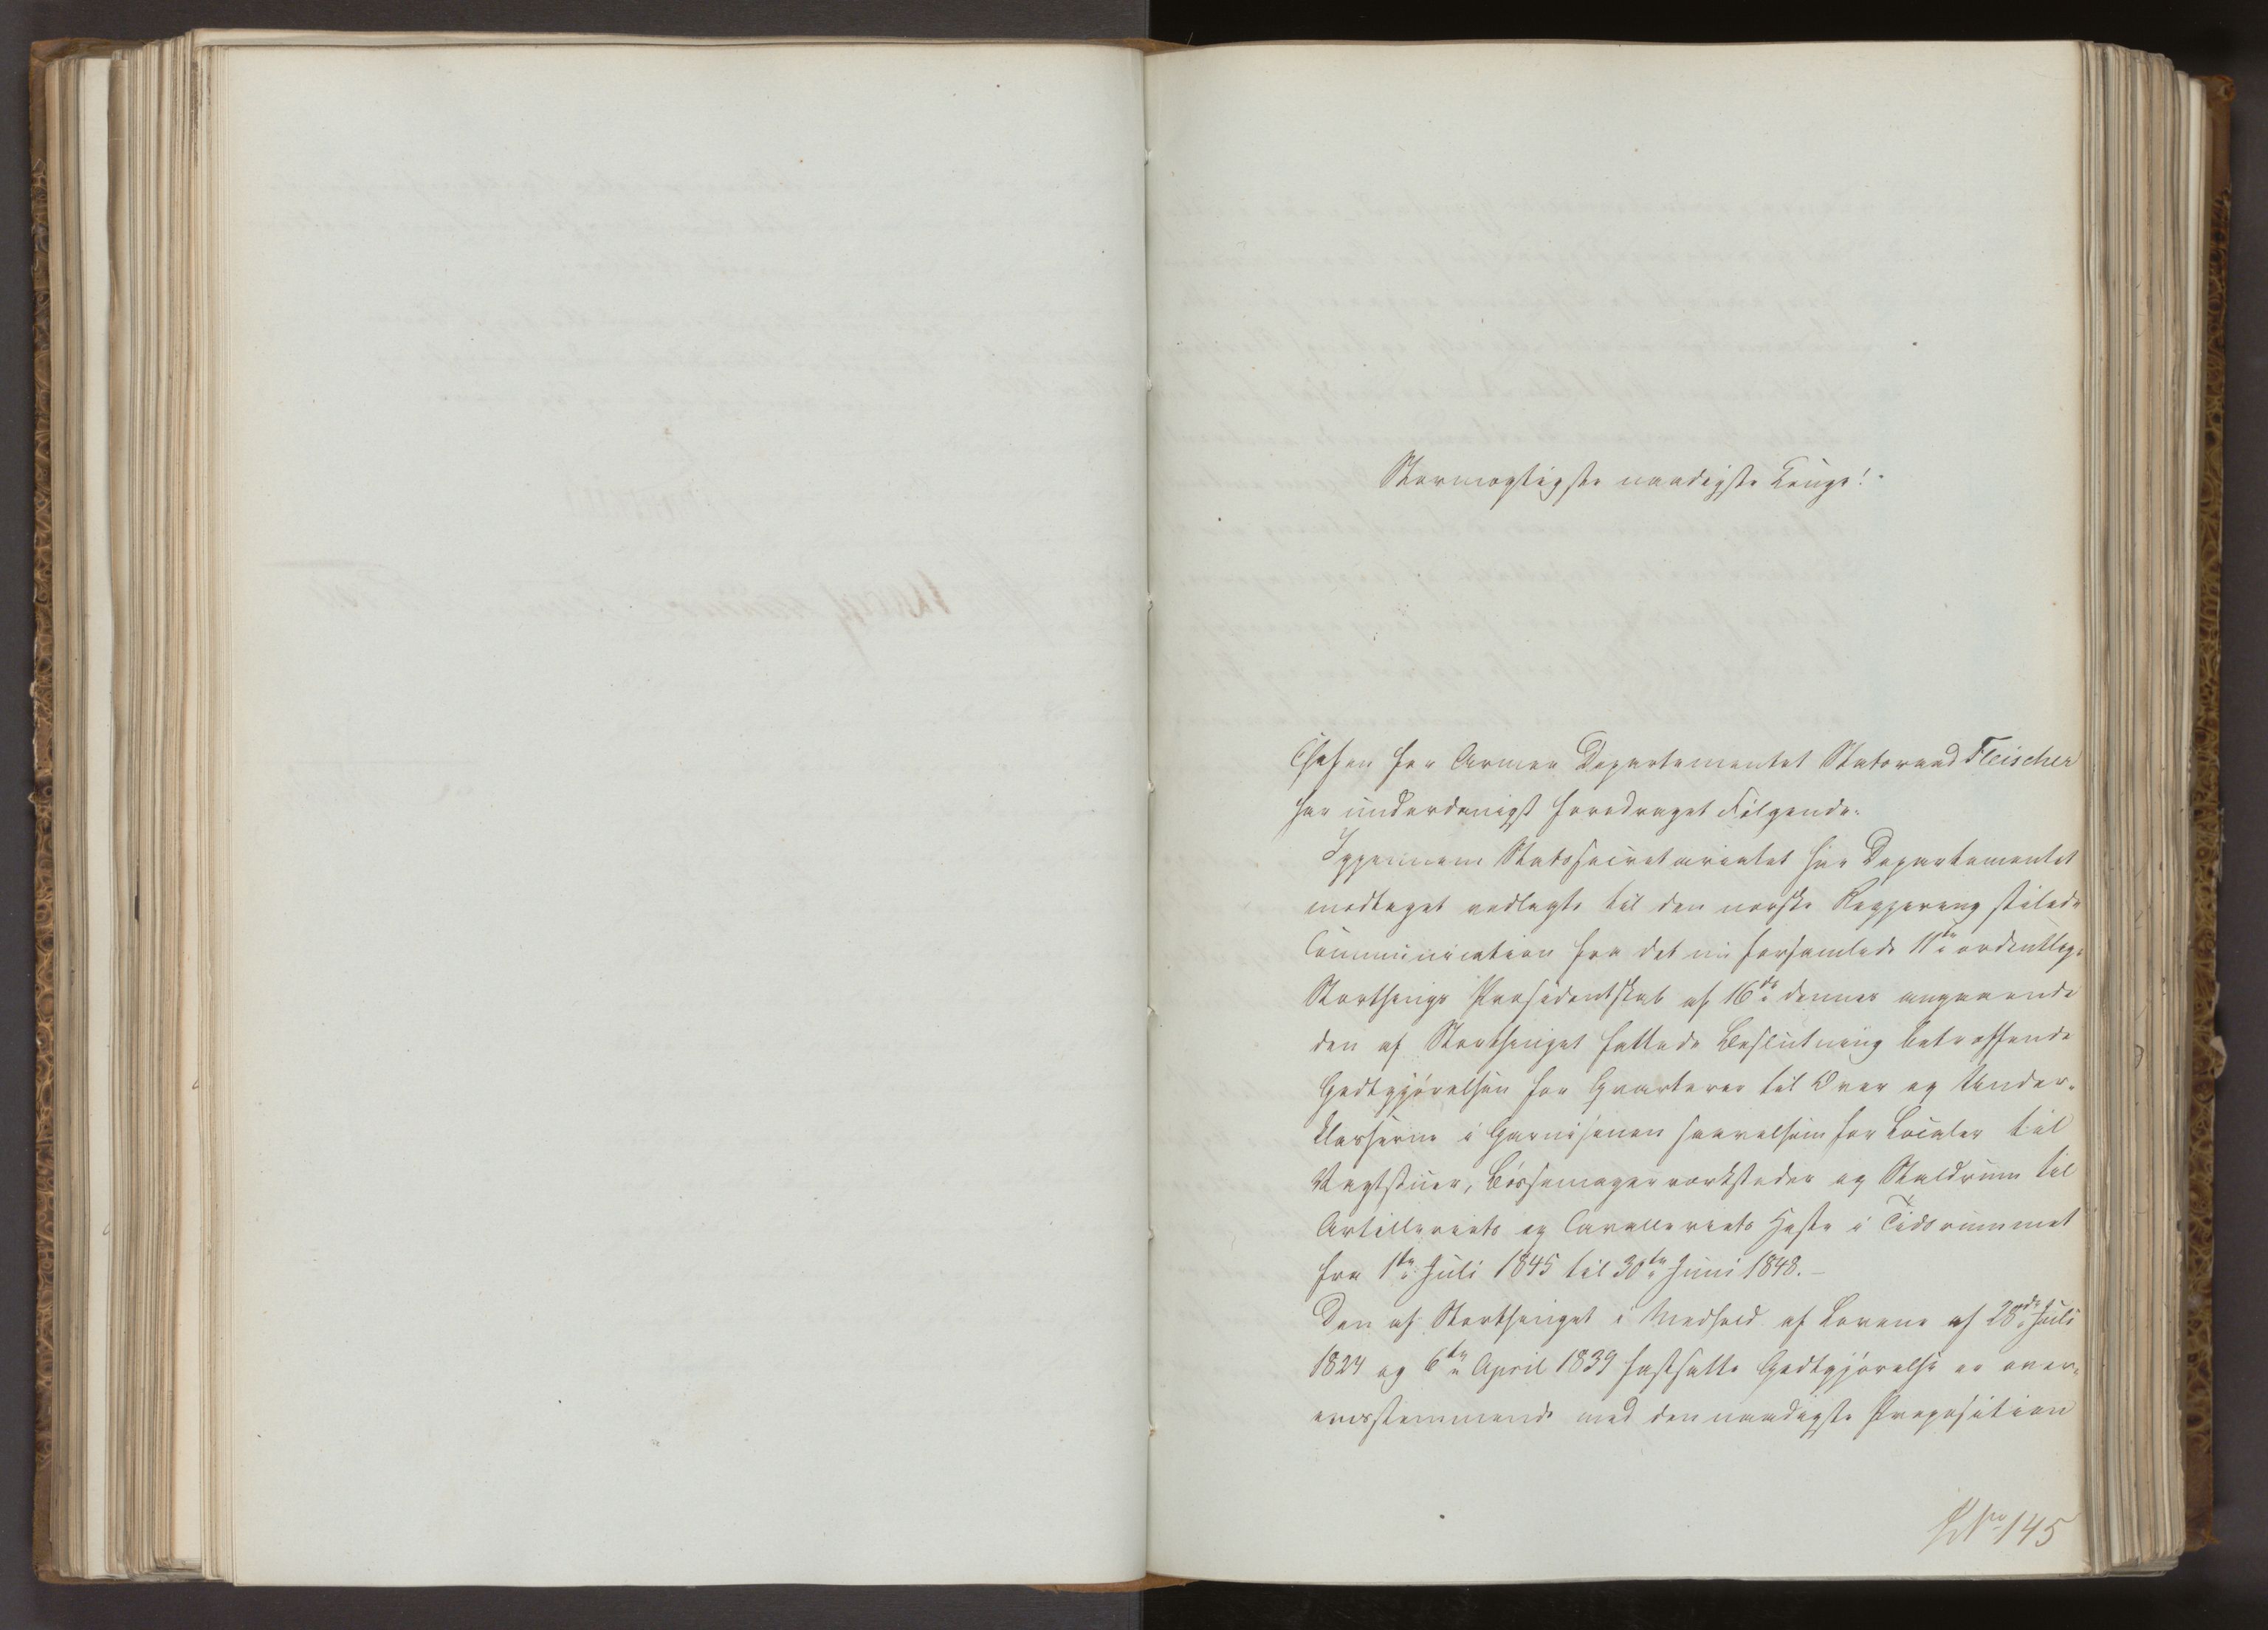 Stormægtigste naadigste Konge!
Chefen for Armee Departementet Statsraad Fleischer
har underdanigst foredraget Følgende:
Igjennem Statssecretariatet har Departementet
modtaget vedlagte til den norske Regjering stilede
Communication fra det nu forsamlede 11te ordentlige
Storthings Præsidentskab af 16de dennes angaaende
den af Storthinget fattede Beslutning betræffende
Godtgjørelsen for Qvarterer til Over og Under-
klasserne i Garnisonen saavelsom for Localer til
Vagtstuer, Bøssemagerværksteder og Staldrum til
Artilleriets og Cavalleriets Heste i Tidsrummet
fra 1ste Juli 1845 til 30te Juni 1848. —
Den af Storthinget i Medhold af Lovene af 28de Juli
1824 og 6te April 1839 fastsatte Godtgjørelse er over-
eensstemmende med den naadigste Proposition
No 145